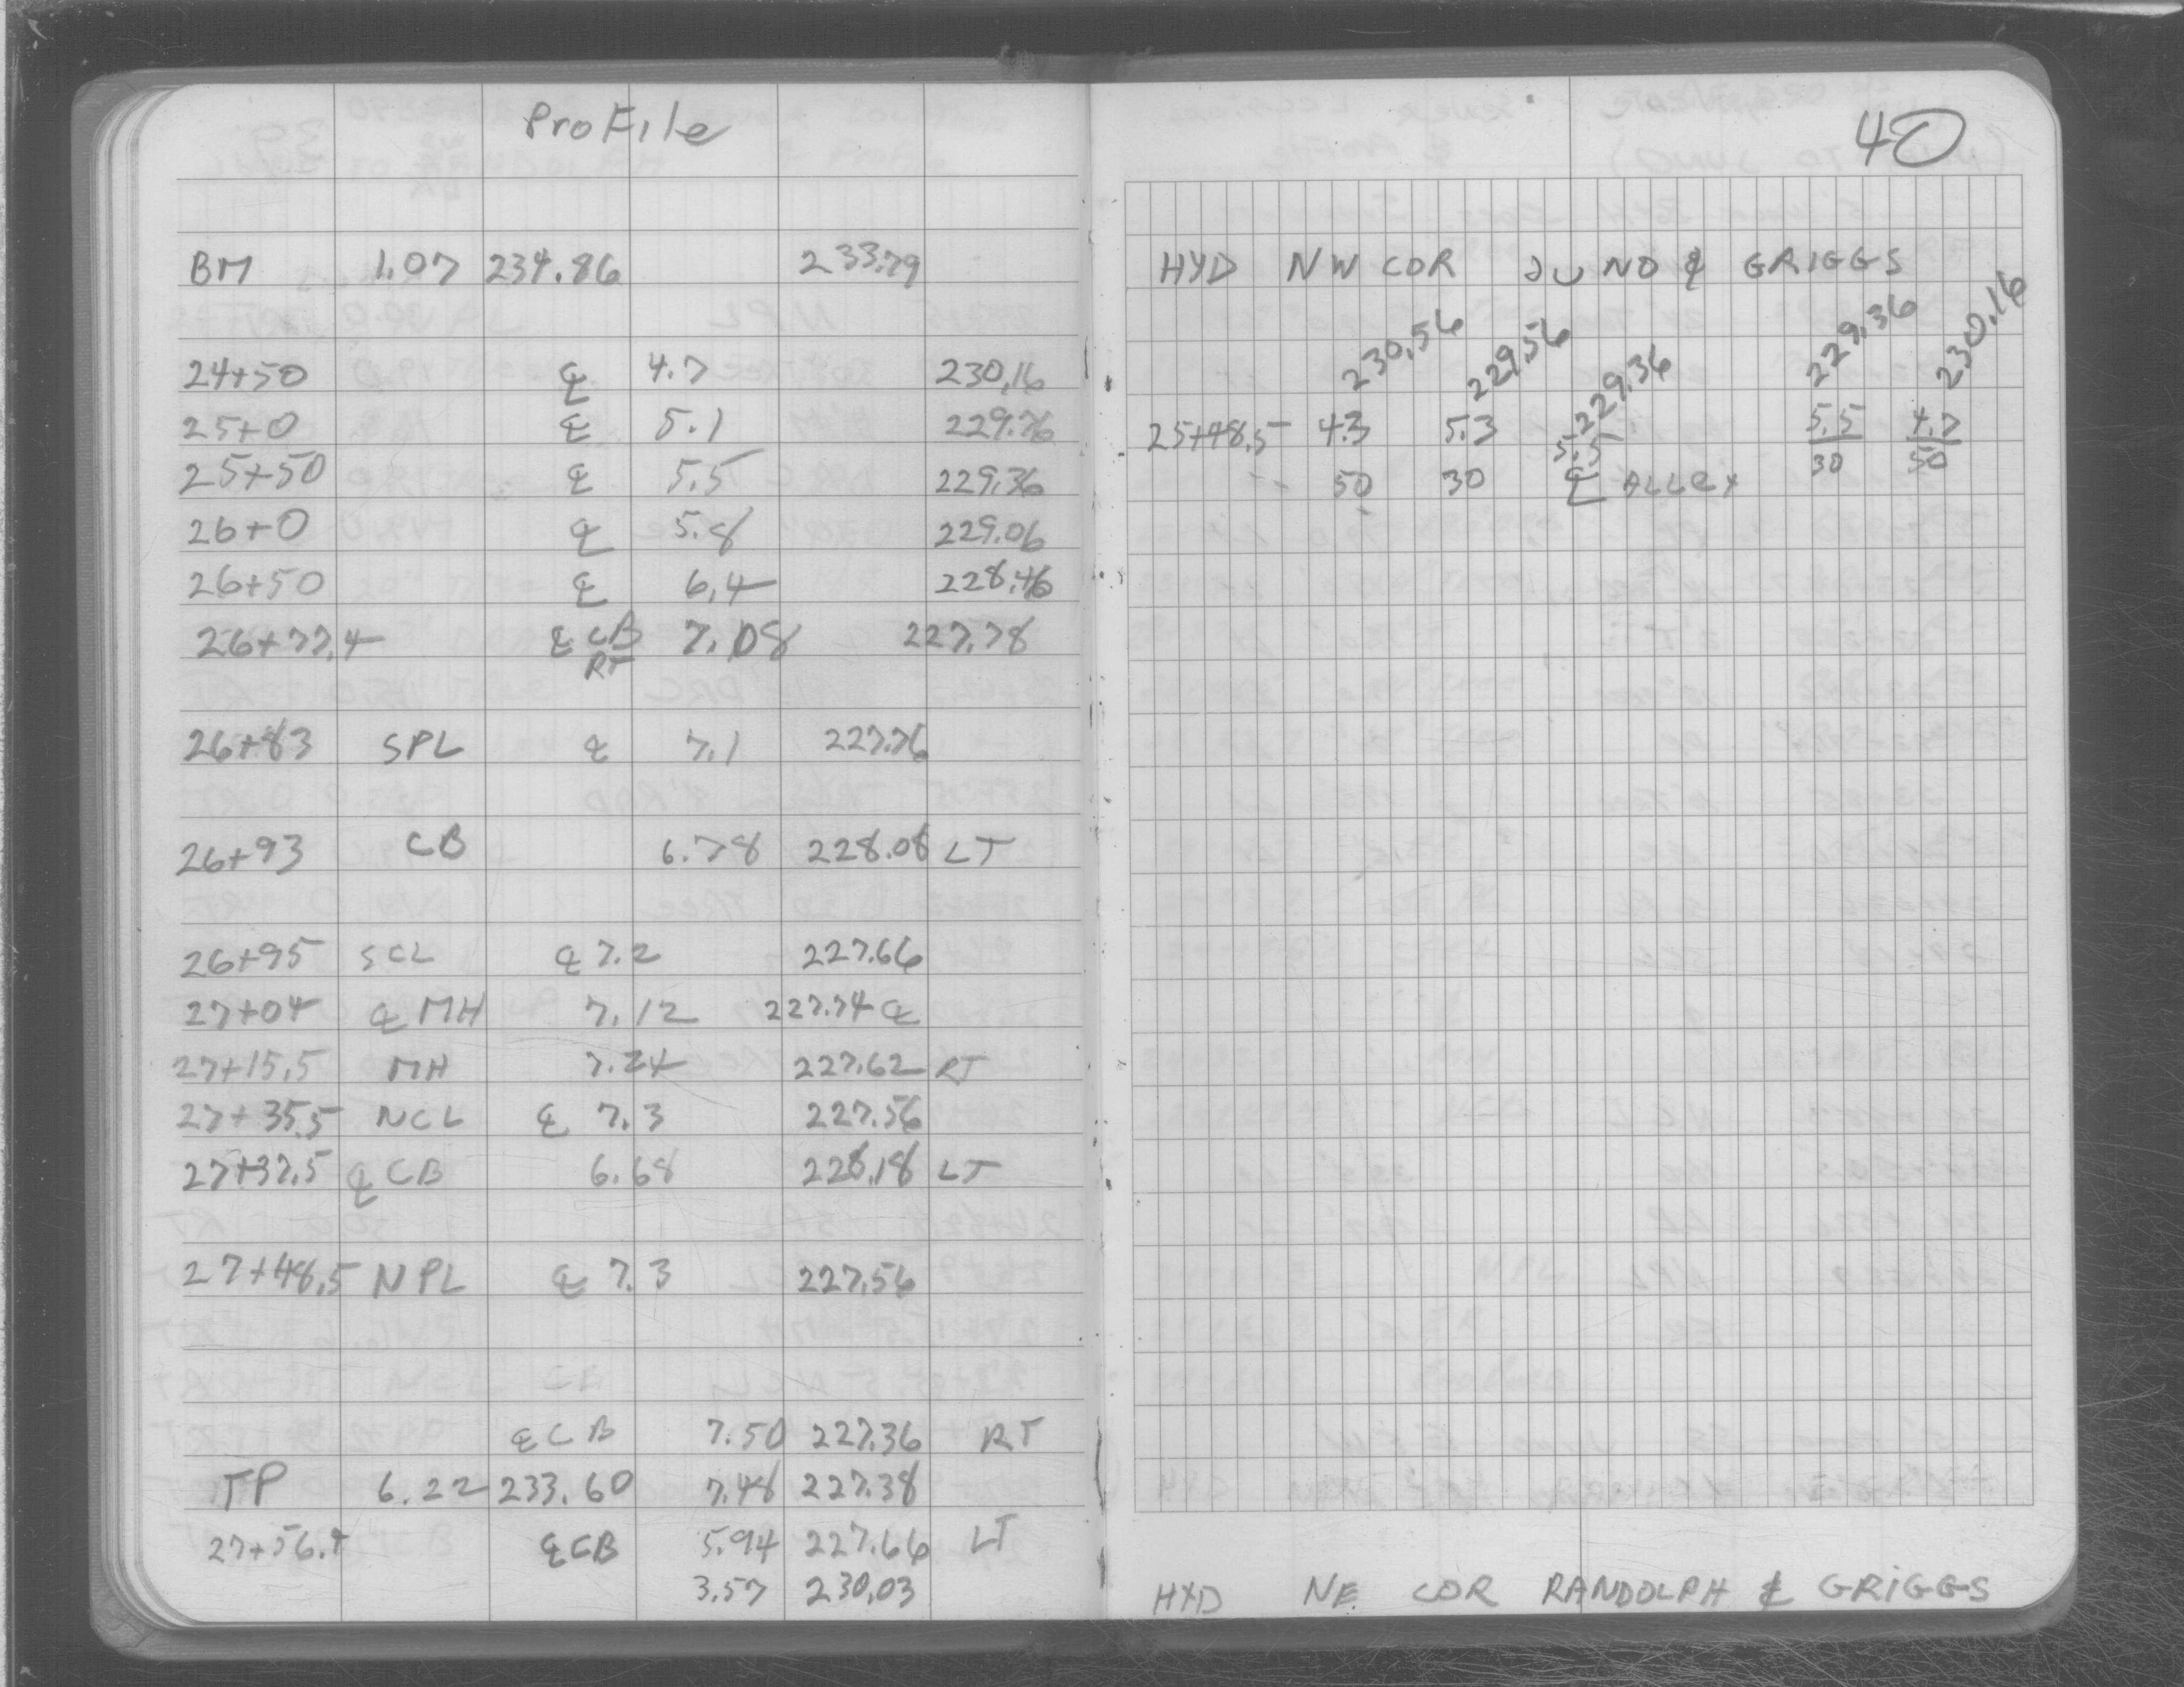 ProFile
BM 1.07 234.86 233.79
24+50 ℄ 4.7 230.16
25+0 ℄ 5.1 229.76
25+50 ℄ 5.5 229.36
26+0 ℄ 5.8 229.06
26+50 ℄ 6.4 228.46
26+77.4 ℄ CB 7.08 227.78
RT
26+83 SPL ℄ 7.1 227.76
26+93 CB 6.78 228.08 LT
26+95 SCL ℄ 7.2 227.66
27+04 ℄ MH 7.12 227.74 ℄
27+15.5 MH 7.24 227.62 RT
27+35.5 NCL ℄ 7.3 227.56
27+37.5 ℄ CB 6.68 228.18 LT
27+48.5 NPL ℄ 7.3 227.56
℄ CB 7.50 227.36 RT
TP 6.22 233.60 7.48 227.38
27+56.4 ℄ CB 5.94 227.66 LT
3.57 230.03
40
HYD NW COR JUNO & GRIGGS
230.56 229.56 229.36 229.36 230.16
25+48.5 4.3 5.3 5.5 5.5 4.7
50 30 ℄ ALLEY 30 50
HYD NE COR RANDOLPH & GRIGGS